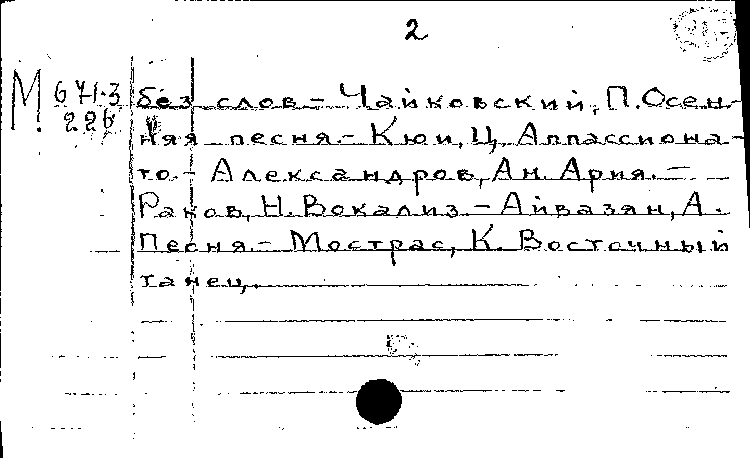 2
М 671-3
226
без слов. - Чайковский, П. Осен-
няя песня. - Кюи, Ц. Аппассиона-
то. - Александров, Ан. Ария. -
Раков, Н. Вокализ. - Айвазян, А.
Песня. - Мострас, К. Восточный
танец.